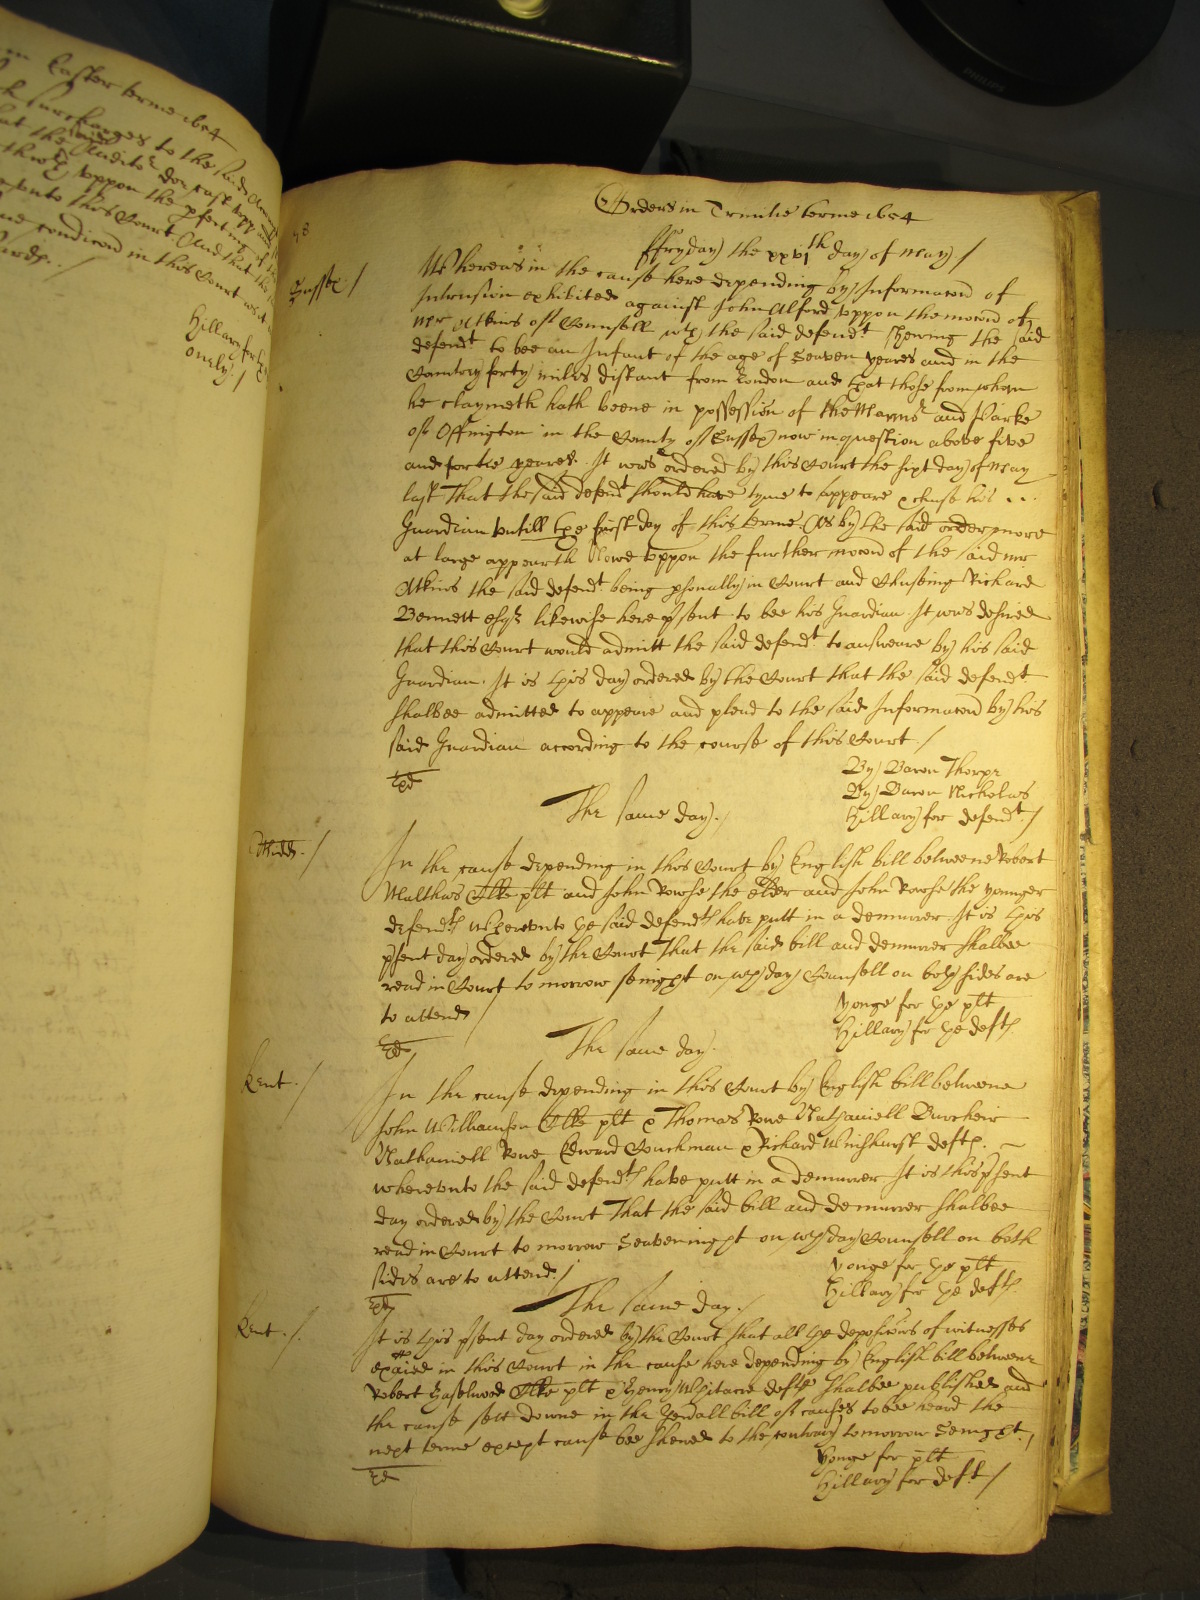 in Easter terme 1654
surcharges to the said
at the said Auditor doe cast upp and
uppon the pfecting of
unto this Court And that the
condicon in this Court
Hillary for
onely /
98
Orders in Trinitie terme 1654
ffryday the xxvith day of May /
Sussex /
Whereas in the cause here depending by Informacon of
Intrusion exhibited against John Alford uppon the mocon of
Mr Atkins of Counsell wth the said defendt shewing the said
defendt to bee an Infant of the age of Seaven yeares and in the
Countrey forty miles distant from London and that those from whom
he claymeth hath beene in possession of the Mannor and Parke
of Offington in the County of Sussex now in question above five
and fortie yeares. It was ordered by this Court the sixt day of May
last That the said defendt should have tyme to appeare & chuse his ...
Guardian untill the first day of this terme. As by the said order more
at large appeareth Nowe uppon the further mocon of the said Mr
Atkins the said defendt being psonally in Court and Chusing Richard
Bennett Esqr likewise here psent to bee his Guardian. It was desired
that this Court would admitt the said defendt to answeare by his said
Guardian. It is this day ordered by the Court that the said defendt
shalbee admitted to appeare and plead to the said Informacon by his
said Guardian according to the course of this Court /
By Baron Thorpe
By Baron Nicholas
Hillary for defendt /
The same day /
Midds. /
In the cause depending in this Court by English bill betweene Robert
Malthus Clke plt and John Rowse the elder and John Rowse the younger
defendts Whereunto the said defendts have putt in a demurrer It is this
psent day ordered by the Court That the said bill and demurrer shalbee
read in Court to morrow senight on wch day Counsell on both sides are
to attend /
Yonge for the plt
Hillary for the defts
The same day.
Kent. /
In the cause depending in this Court by English bill betweene
John Williamson Clke plt & Thomas Rowe Nathaniell
Nathaniell Rowe Edward Couchman & Richard Winshurst defts.
whereunto the said defendts have putt in a demurrer It is this psent
day ordered by the Court That the said bill and demurrer shalbee
read in Court to morrow Seavenight on wch day Counsell on both
sides are to attend. /
Yonge for the plt
Hillary for the defts
The same day /
Kent. /.
It is this psent day ordered by the Court that all the deposicions of witnesses
exaied in this Court in the cause here depending by English bill betweene
Robert Haslewood Clke plt & Henry Whitacre defts Shalbee published and
the cause sett downe in the genall bill of causes to bee heard the
next terme except cause bee shewed to the contrary to morrow Senight /
Yonge for plt
Hillary for deft /
PHILIPS